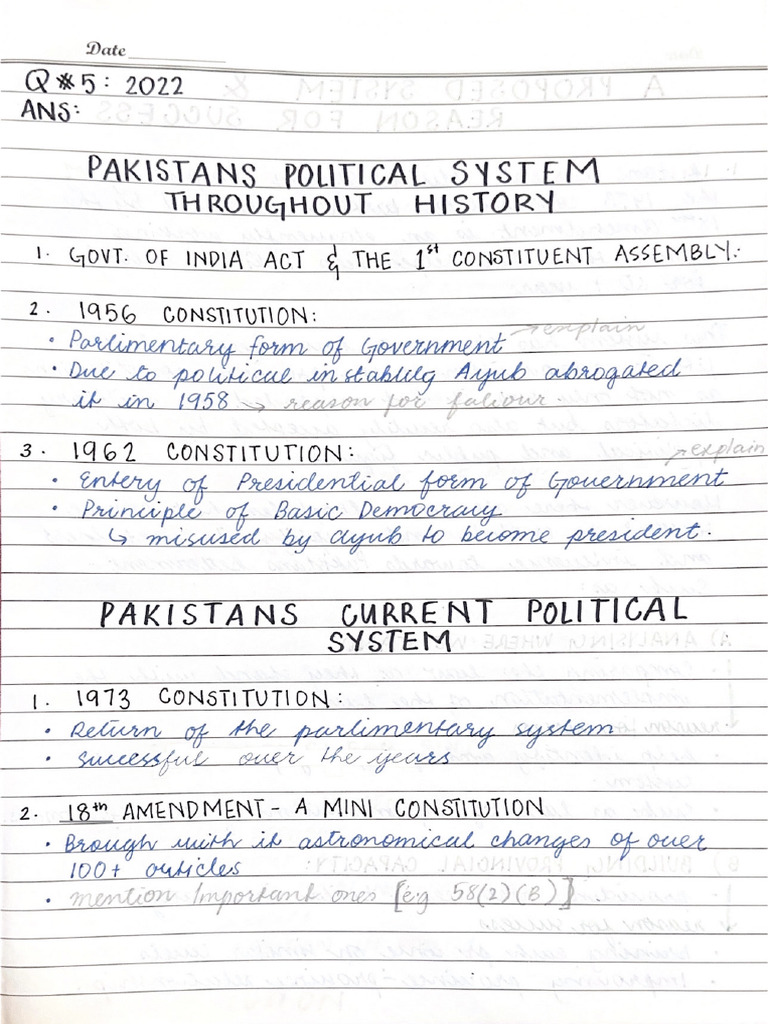 Date
Q#5: 2022
ANS:
PAKISTANS POLITICAL SYSTEM
THROUGHOUT HISTORY
1. GOVT. OF INDIA ACT & THE 1st CONSTITUENT ASSEMBLY:
2. 1956 CONSTITUTION:
• Parlimentary form of Government → explain
• Due to political instability Ayub abrogated
it in 1958 → reason for faliour.
3. 1962 CONSTITUTION:
→ explain
• Entery of Presidential form of Government
• Principle of Basic Democracy
↳ misused by ayub to become president.
PAKISTANS CURRENT POLITICAL
SYSTEM
1. 1973 CONSTITUTION:
• Return of the parlimentary system
• successful over the years
2. 18th AMENDMENT - A MINI CONSTITUTION
• Brough with it astronomical changes of over
100+ articles
• mention Important ones [e.g 58(2)(B)].